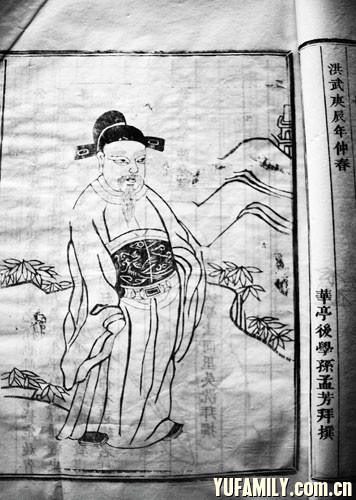 洪武庚辰年仲春
華亭後學孫孟芳拜撰
YUFAMILY.com.cn